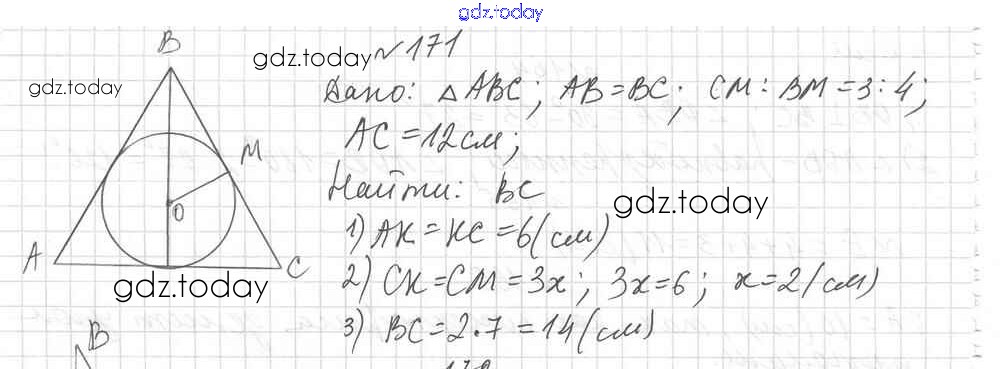 gdz.today
B
gdz.today № 171
gdz.today
Дано: △ ABC; AB = BC; CM : BM = 3 : 4;
AC = 12 см;
M
Найти: BC
gdz.today
O
1) AK = KC = 6 (см)
A
C
2) CK = CM = 3x; 3x = 6; x = 2 (см)
gdz.today
3) BC = 2 · 7 = 14 (см)
B